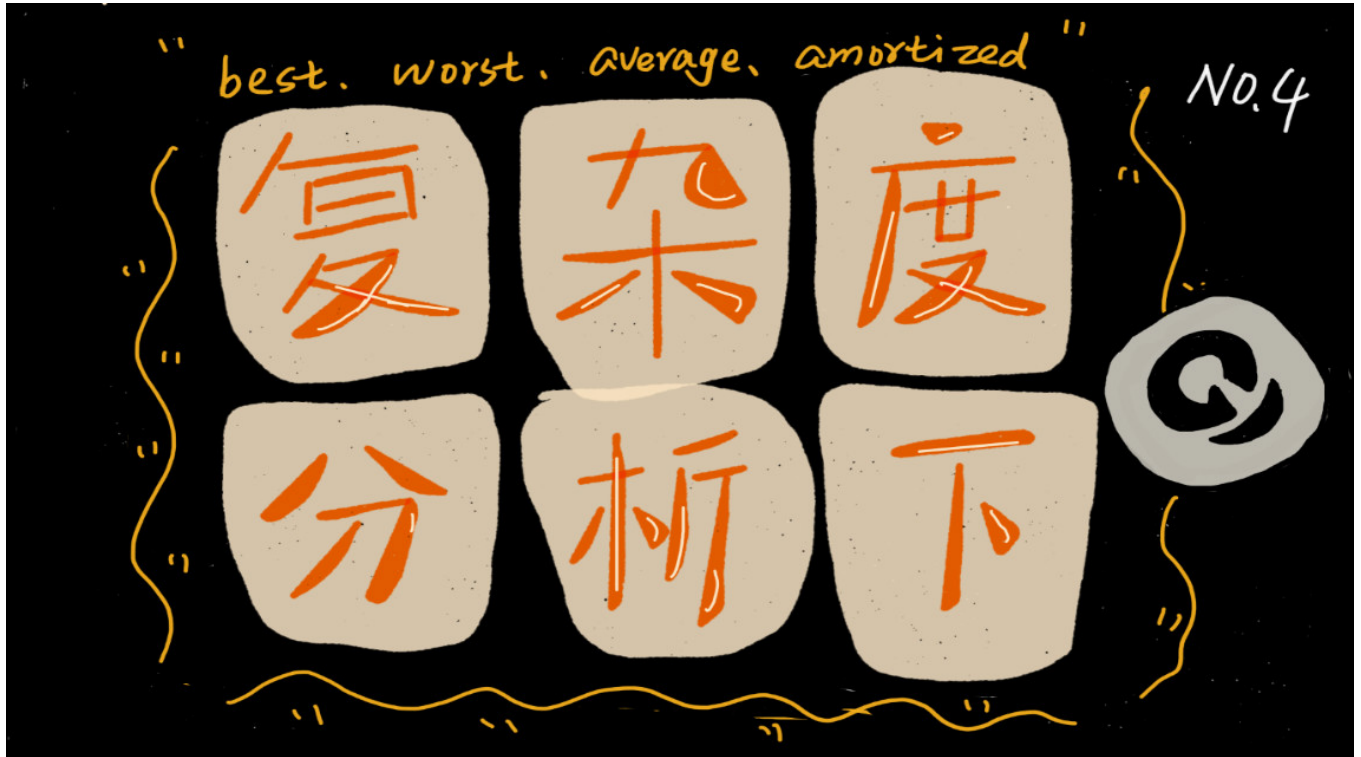 " best. worst. average、amortized "
NO.4
复杂度
分析下